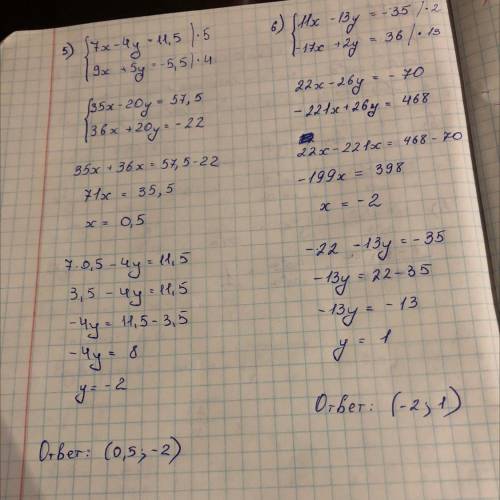 5) { 7x - 4y = 11,5 | · 5
9x + 5y = -5,5 | · 4
{ 35x - 20y = 57,5
36x + 20y = -22
35x + 36x = 57,5 - 22
71x = 35,5
x = 0,5
7 · 0,5 - 4y = 11,5
3,5 - 4y = 11,5
-4y = 11,5 - 3,5
-4y = 8
y = -2
Ответ: (0,5; -2)
6) { 11x - 13y = -35 | · 2
-17x + 2y = 36 | · 13
22x - 26y = -70
-221x + 26y = 468
22x - 221x = 468 - 70
-199x = 398
x = -2
-22 - 13y = -35
-13y = 22 - 35
-13y = -13
y = 1
Ответ: (-2; 1)